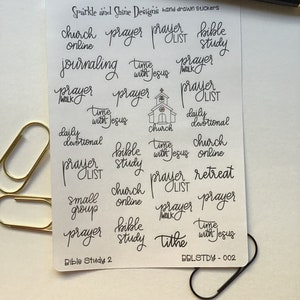 Sparkle and Shine Designs hand drawn stickers
church online
prayer
prayer LIST
bible study
journaling
time with Jesus
prayer
prayer walk
prayer
prayer LIST
time with Jesus
church
daily devotional
daily devotional
prayer LIST
bible study
time with Jesus
church online
prayer
church online
prayer LIST
retreat
small group
prayer
time with Jesus
prayer
bible study
tithe
Bible Study 2
BBLSTDY - 002